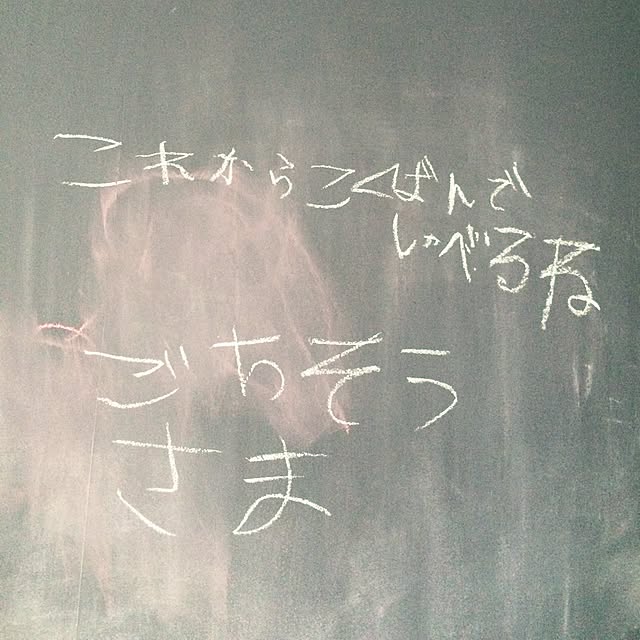 これからこくばんで
しゃべるね
ごちそう
さま